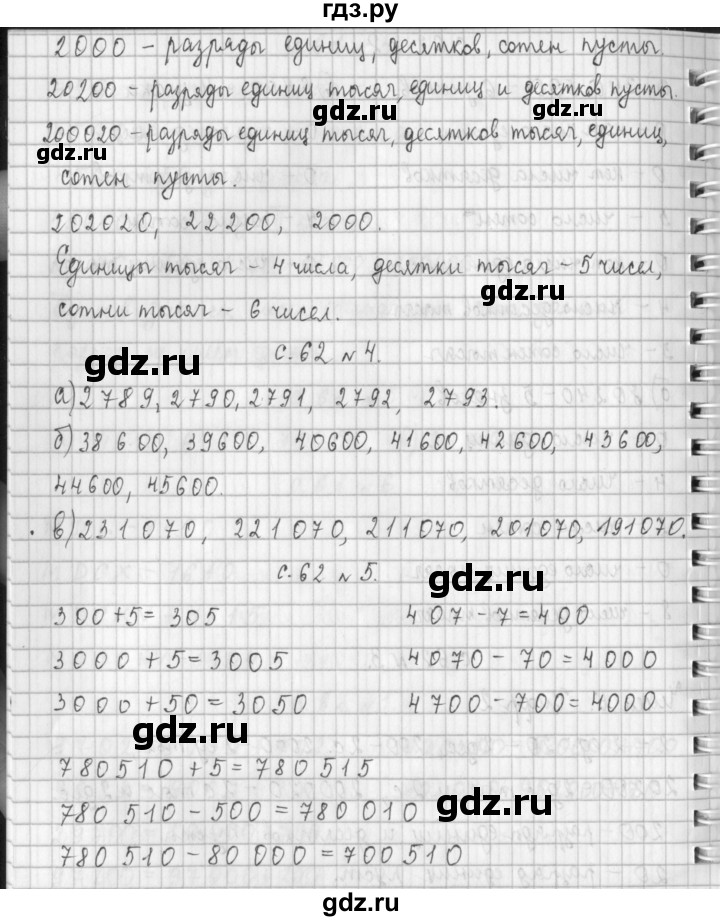 гдз.ру
2000 – разряды единиц, десятков, сотен пусты.
20200 – разряды единиц тысяч, единиц и десятков пусты.
gdz.ru
gdz.ru
200020 – разряды единиц тысяч, десятков тысяч, единиц,
gdz.ru
сотен пусты.
202020, 22200, 2000.
Единицы тысяч – 4 числа, десятки тысяч – 5 чисел,
gdz.ru
сотни тысяч – 6 чисел.
с. 62 № 4.
gdz.ru
а) 2789, 2790, 2791, 2792, 2793.
б) 38 600, 39600, 40600, 41600, 42600, 43600,
44600, 45600.
в) 231070, 221070, 211070, 201070, 191070.
с. 62 № 5.
gdz.ru
300+5= 305 407-7=400
3000+5=3005 4070-70=4000
3000+50=3050 4700-700=4000
gdz.ru
780510+5=780515
780 510-500=780010
gdz.ru
780 510-80 000=700510
gdz.ru